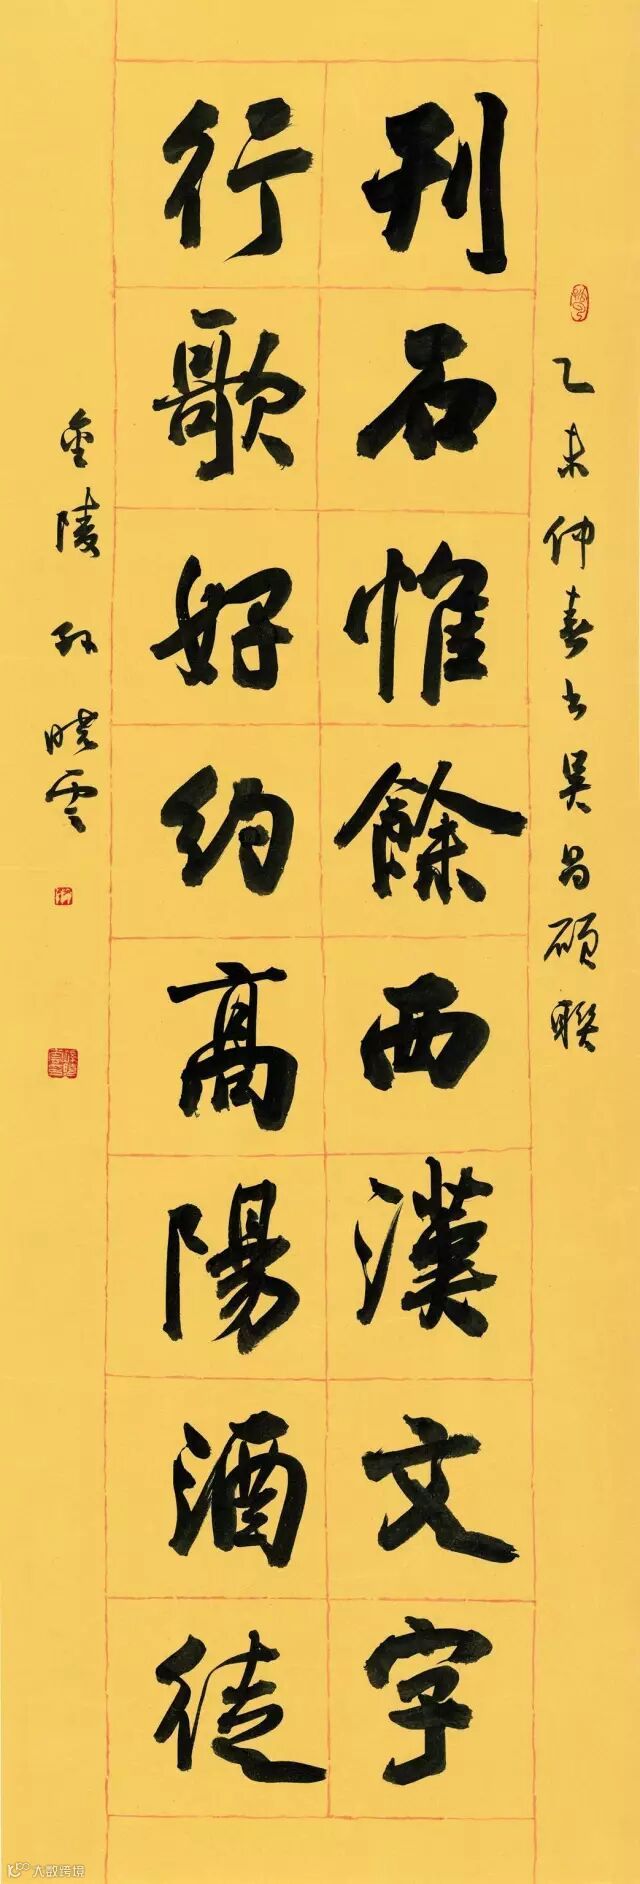 乙未仲春書吳昌碩聯
刊石惟餘西漢文字
行歌好約高陽酒徒
金陵孫曉雲
大数跨境